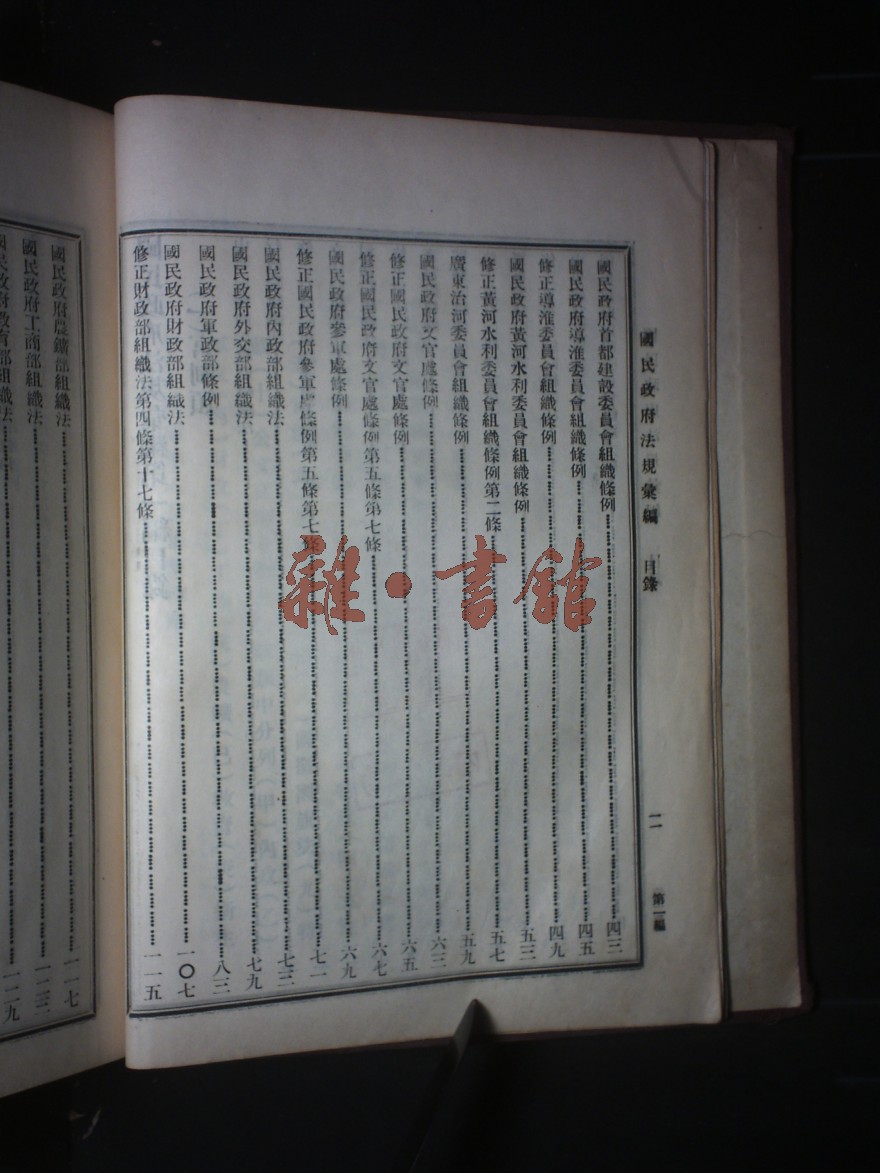 國民政府法規彙編　目錄　二　第一編
國民政府首都建設委員會組織條例⋯⋯四三
國民政府導淮委員會組織條例⋯⋯四五
修正導淮委員會組織條例⋯⋯四九
國民政府黃河水利委員會組織條例⋯⋯五三
修正黃河水利委員會組織條例第二條⋯⋯五七
廣東治河委員會組織條例⋯⋯五九
國民政府文官處條例⋯⋯六三
修正國民政府文官處條例⋯⋯六五
修正國民政府文官處條例第五條第七條⋯⋯六七
國民政府參軍處條例⋯⋯六九
修正國民政府參軍處條例第五條第七條⋯⋯七一
國民政府內政部組織法⋯⋯七三
國民政府外交部組織法⋯⋯七九
國民政府軍政部條例⋯⋯八三
國民政府財政部組織法⋯⋯一〇七
修正財政部組織法第四條第十七條⋯⋯一一五
國民政府農鑛部組織法⋯⋯一一七
國民政府工商部組織法⋯⋯一二三
國民政府教育部組織法⋯⋯一二九
雜·書館